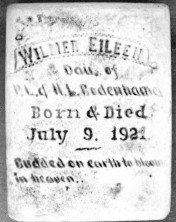 WILMER EILEEN
Dau. of
P. C. & H. L. Bodenhamer
Born & Died
July 9, 1921
Budded on earth to bloom
in heaven.